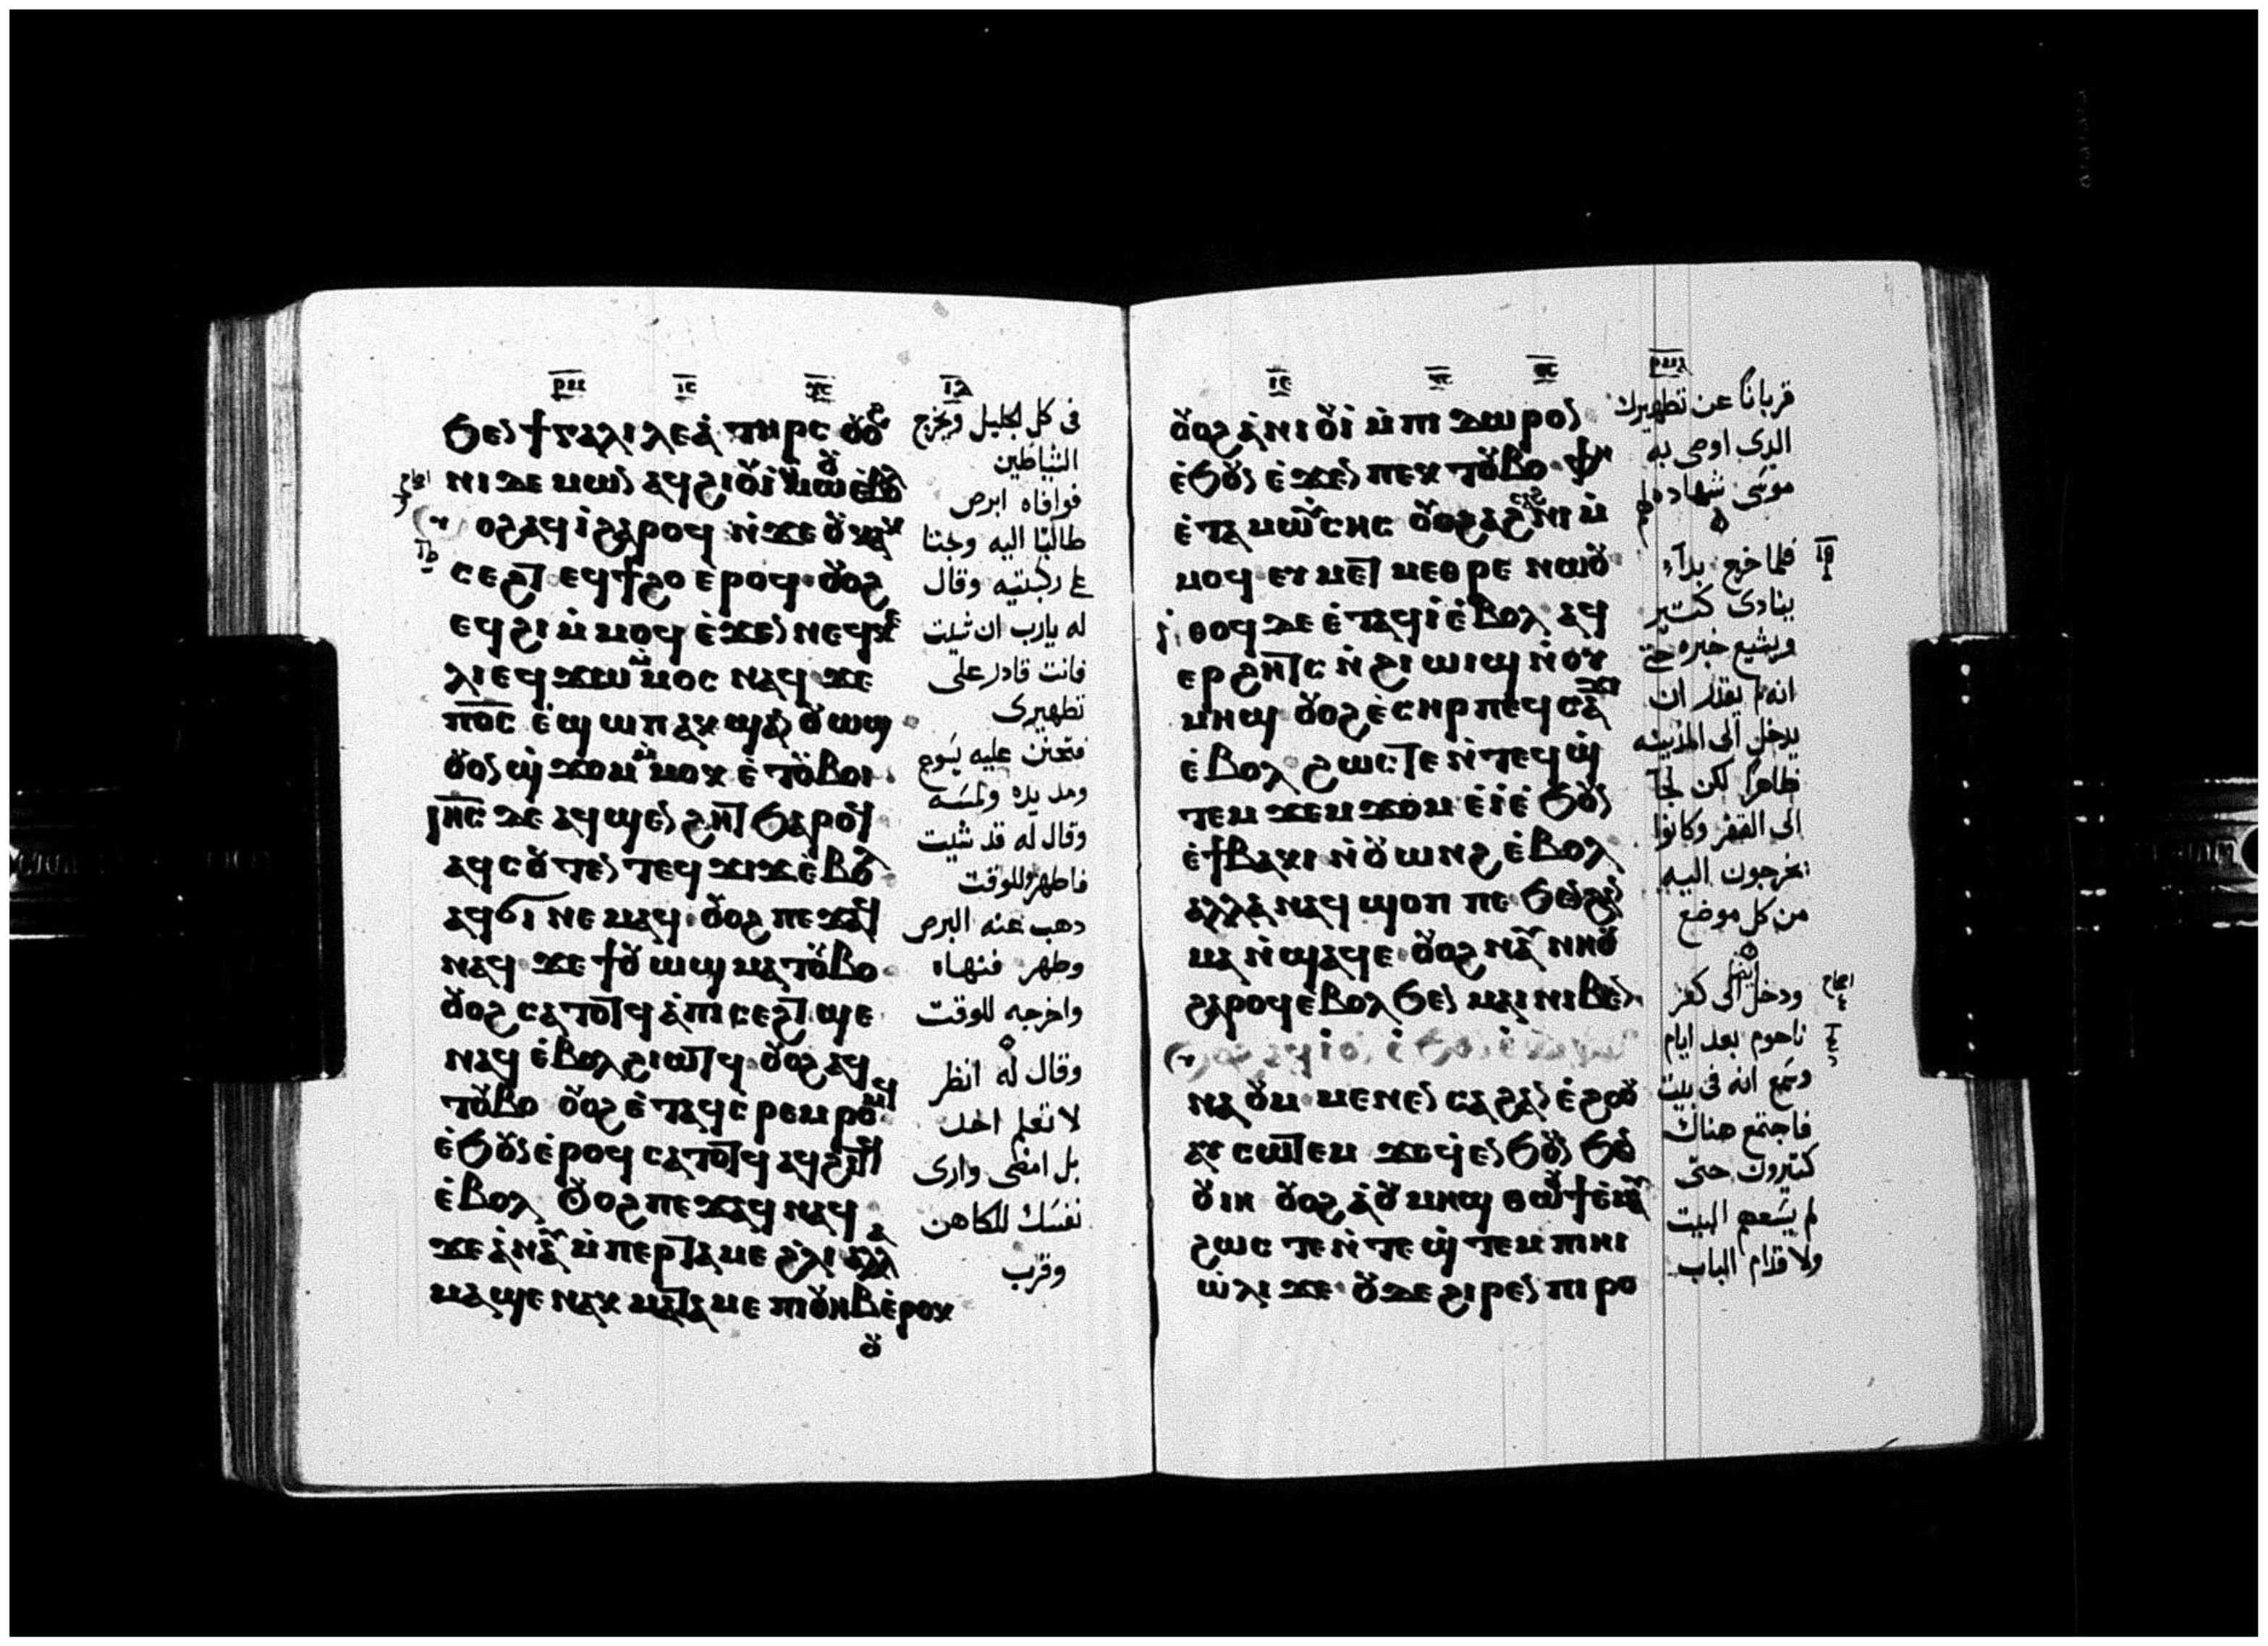 ⲣⲙ ⲓⲥ
ϧⲉⲛ ϯⲅⲁⲗⲓⲗⲉⲁ̀ ⲧⲏⲣⲥ ⲟⲩⲟϩ
ⲛⲓⲇⲉⲙⲱⲛ ⲁϥϩⲓⲟⲩⲓ̀ ⲙ̀ⲙⲱⲟⲩ ⲉ̀ⲃⲟⲗ
ⲟϩ ⲁϥⲓ̀ ϩⲁⲣⲟϥ ⲛ̀ϫⲉ ⲟⲩⲕⲁⲕ
ⲥⲉϩⲧ ⲉϥϯϩⲟ ⲉ̀ⲣⲟϥ ⲟⲩⲟϩ
ⲉϥϩⲓ ⲙ̀ⲙⲟϥ ⲉ̀ϫⲉⲛ ⲛⲉϥⲕⲉ
ⲗⲓ ⲉϥϫⲱ ⲙ̀ⲙⲟⲥ ⲛⲁϥ ϫⲉ
ⲡⲟ̅ⲥ̅ ⲉ̀ϣⲱⲡ ⲁⲕϣⲁⲛⲟⲩⲱϣ
ⲟⲩⲟⲛ ϣ̀ϫⲟⲙ ⲙ̀ⲙⲟⲕ ⲉ̀ⲧⲟⲩⲃⲟⲓ
ⲓⲏ̅ⲥ̅ ⲇⲉ ⲁϥϣⲉⲛϩⲏⲧ ϧⲁⲣⲟϥ
ⲁϥⲥⲟⲩⲧⲉⲛ ⲧⲉϥϫⲓϫ ⲉ̀ⲃⲟⲗ
ⲁϥϭⲓ ⲛⲉⲙⲁϥ ⲟⲩⲟϩ ⲡⲉϫⲁϥ
ⲛⲁϥ ϫⲉ ϯⲟⲩⲱϣ ⲙⲁⲧⲟⲩⲃⲟ
ⲟⲩⲟϩ ⲥⲁⲧⲟⲧϥ ⲁ̀ⲡⲓⲥⲉϩⲧ ϣⲉ
ⲛⲁϥ ⲉ̀ⲃⲟⲗ ϩⲓⲱⲧϥ ⲟⲩⲟϩ ⲁϥ
ⲧⲟⲩⲃⲟ ⲟⲩⲟϩ ⲉ̀ⲧⲁϥⲉ̀ⲣⲉⲙⲣⲱⲙϥ
ⲉ̀ϧⲟⲩⲛ ⲉ̀ⲣⲟϥ ⲥⲁⲧⲟⲧϥ ⲁϥϩⲓⲧϥ
ⲉ̀ⲃⲟⲗ ⲟⲩⲟϩ ⲡⲉϫⲁϥ ⲛⲁϥ
ϫⲉ ⲁ̀ⲛⲁⲩ ⲙ̀ⲡⲉⲣⲧⲁⲙⲉ ϩ̀ⲗⲓ ⲁⲗⲗⲁ
ⲙⲁϣⲉ ⲛⲁⲕ ⲙⲁⲧⲁⲙⲉ ⲡⲓⲟⲩⲏⲃ ⲉ̀ⲣⲟⲕ
ⲟⲩ
في كل الجليل ويخرج
الشياطين
فوافاه ابرص
طالبًا اليه وجثا
على ركبتيه وقال
له يارب ان شيت
فانت قادر على
تطهيرى
فتحنن عليه يسوع
ومد يده ولمسه
وقال له قد شيت
فاطهر وللوقت
ذهب عنه البرص
وطهر فنهاه
واخرجه للوقت
وقال له انظر
لا تعلم احد
بل امضى وارى
نفسك للكاهن
وقرب
ⲟⲩⲟϩ ⲁ̀ⲛⲓⲟⲩⲓ̀ ⲙ̀ⲡⲓⲇⲱⲣⲟⲛ
ⲉ̀ϧⲟⲩⲛ ⲉ̀ϫⲉⲛ ⲡⲉⲕⲧⲟⲩⲃⲟ ⲫⲏ
ⲉ̀ⲧⲁ ⲙⲱⲩⲥⲏⲥ ⲟⲩⲁϩⲥⲁϩⲛⲓ ⲙ̀
ⲙⲟϥ ⲉⲩⲙⲉⲧⲙⲉⲑⲣⲉ ⲛⲱⲟⲩ
ⲛ̀ⲑⲟϥ ⲇⲉ ⲉ̀ⲧⲁϥⲓ̀ ⲉ̀ⲃⲟⲗ ⲁϥ
ⲉⲣϩⲏⲧⲥ ⲛ̀ϩⲓⲱⲓϣ ⲛ̀ⲟⲩ
ⲙⲏϣ ⲟⲩⲟϩ ⲉ̀ⲥⲏⲣ ⲡⲉϥⲥⲁϫⲓ
ⲉ̀ⲃⲟⲗ ϩⲱⲥⲧⲉ ⲛ̀ⲧⲉϥϣ̀
ⲧⲉⲙϫⲉⲙϫⲟⲙ ⲉ̀ⲓ̀ ⲉ̀ϧⲟⲩⲛ
ⲉ̀ϯⲃⲁⲕⲓ ⲛ̀ⲟⲩⲱⲛϩ ⲉ̀ⲃⲟⲗ
ⲁⲗⲗⲁ ⲛⲁϥϣⲟⲡ ⲡⲉ ϧⲉⲛ ϩⲁⲛ
ⲙⲁ ⲛ̀ϣⲁϥⲉ ⲟⲩⲟϩ ⲛⲁⲩⲛⲏⲟⲩ
ϩⲁⲣⲟϥ ⲉ̀ⲃⲟⲗ ϧⲉⲛ ⲙⲁⲓ ⲛⲓⲃⲉⲛ
ⲛⲁⲟⲩⲙ ⲙⲉⲛⲉⲛⲥⲁ ϩⲁⲛⲉ̀ϩⲟⲟⲩ
ⲁⲩⲥⲱⲧⲉⲙ ϫⲉ ϥ̀ϧⲉⲛ ϧⲟⲩⲛ ϧⲉⲛ
ⲟⲩⲏⲓ ⲟⲩⲟϩ ⲁ̀ⲟⲩⲙⲏϣ ⲑⲱⲟⲩϯ ⲉ̀ⲙⲁⲩ
ϩⲱⲥⲧⲉ ⲛ̀ⲧⲉϣ̀ⲧⲉⲙ ⲡⲓⲏⲓ
ⲱ̀ⲗⲓ ϫⲉ ⲟⲩⲇⲉ ϩⲓⲣⲉⲛ ⲡⲓⲣⲟ
قربانًا عن تطهيرك
الذى اوصى به
موسى شهاده لهم
فلما خرج بدا
ينادى كثير
ويشيع خبره حتى
انه لم يقدر ان
يدخل الى المدينه
ظاهرًا لكن لجا
الى القفر وكانوا
يخرجون اليه
من كل موضع
ودخل ايضا الى كفر
ناحوم بعد ايام
وسمع انه فى بيت
فاجتمع هناك
كثيرون حتى
لم يسعهم البيت
ولا قدام الباب